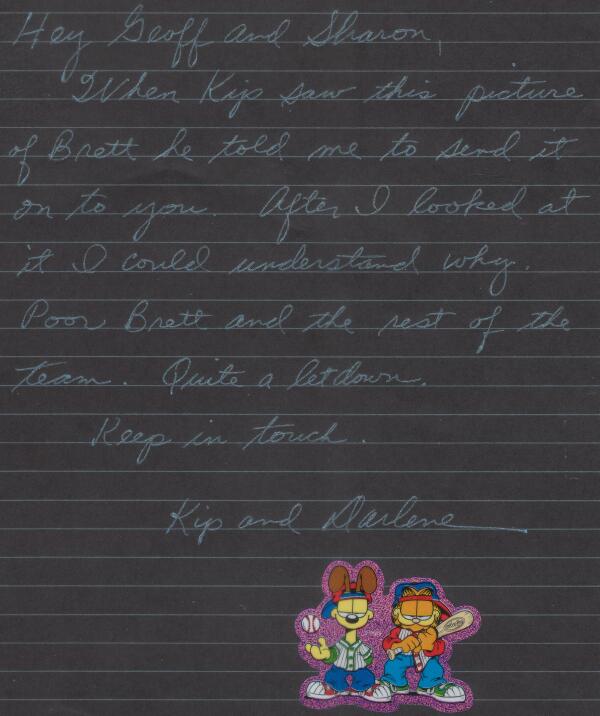 Hey Geoff and Sharon,
When Kip saw this picture
of Brett he told me to send it
on to you. After I looked at
it I could understand why.
Poor Brett and the rest of the
team. Quite a letdown.
Keep in touch.
Kip and Darlene